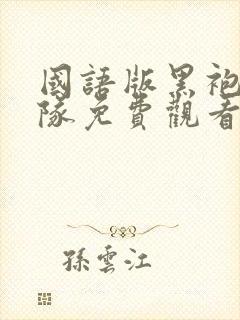 國語版黑袍
隊免費觀看
孫雲江